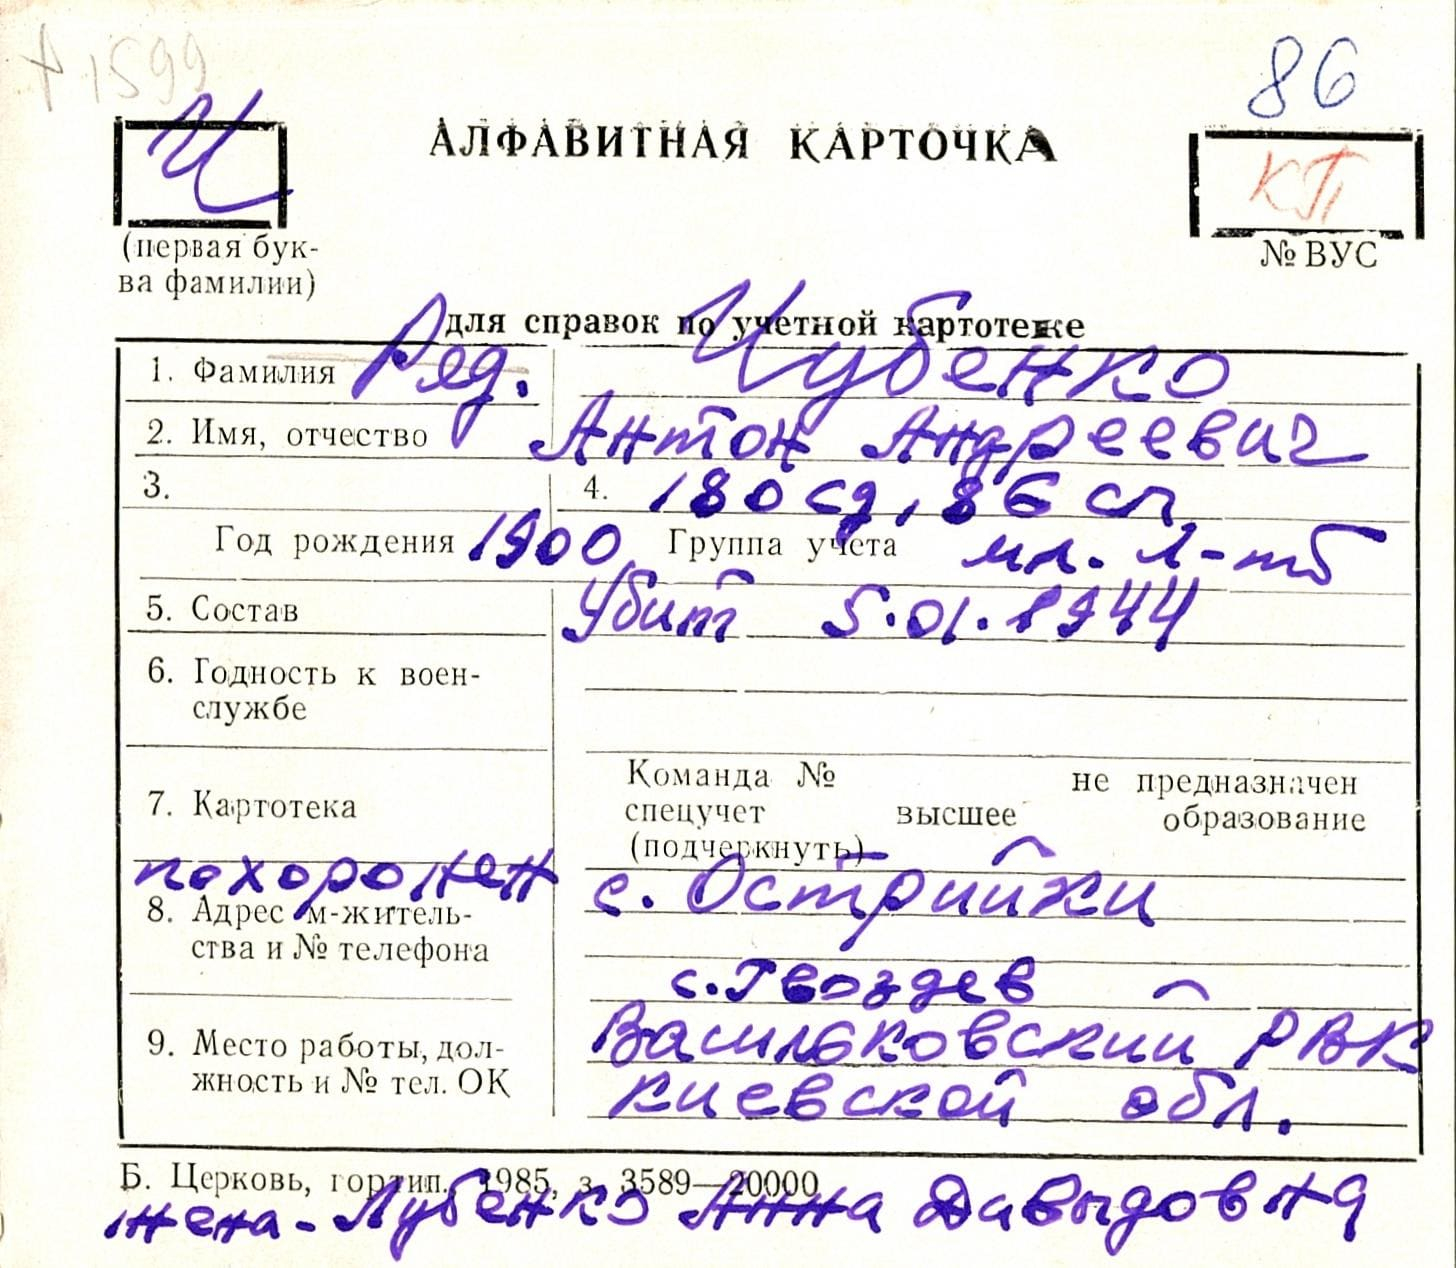 1599
86
Ч
АЛФАВИТНАЯ КАРТОЧКА
КП
(первая бук-
ва фамилии)
№ ВУС
для справок по учетной картотеке
1. Фамилия Ряд. Чубенко
2. Имя, отчество Антон Андреевич
3. 4. 180 сд, 86 сп
Год рождения 1900 Группа учета мл. л-тб
5. Состав Убит 5.01.1944
6. Годность к воен-
службе
7. Картотека
Команда № не предназначен
спецучет высшее образование
(подчеркнуть)
похоронен с. Острийки
8. Адрес м-житель-
ства и № телефона
с. Гвоздев
9. Место работы, дол-
жность и № тел. ОК
Васильковский РВК
Киевской обл.
Б. Церковь, гортип. 1985, з. 3589—20000
жена - Лубенко Анна Давыдовна